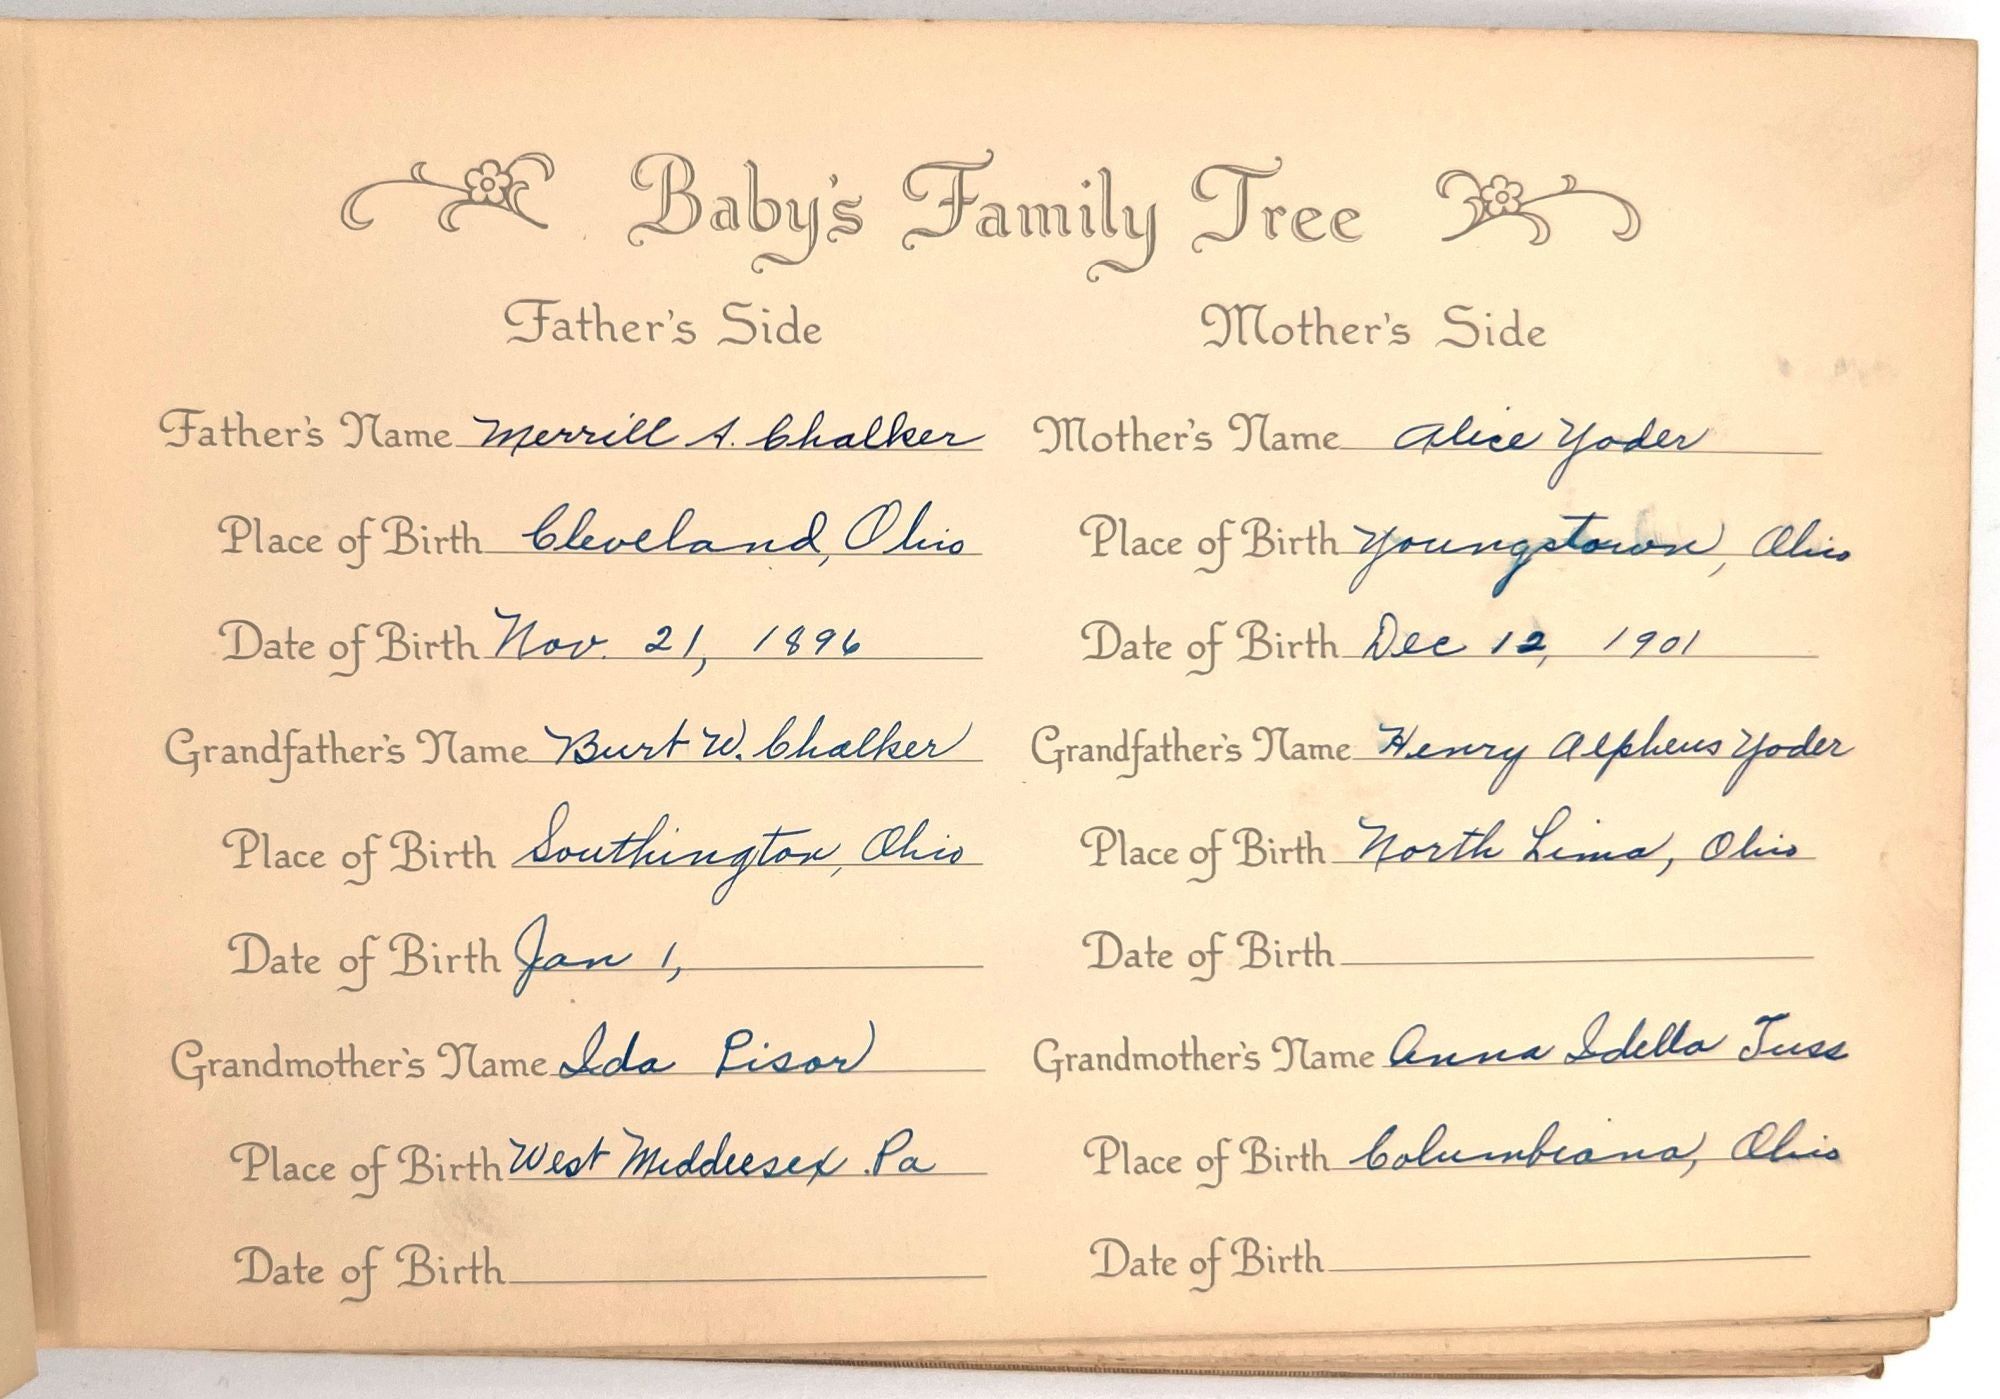 Baby's Family Tree
Father's Side
Father's Name Merrill A. Chalker
Place of Birth Cleveland, Ohio
Date of Birth Nov. 21, 1896
Grandfather's Name Burt W. Chalker
Place of Birth Southington, Ohio
Date of Birth Jan 1,
Grandmother's Name Ida Pisor
Place of Birth West Middlesex Pa
Date of Birth
Mother's Side
Mother's Name Alice Yoder
Place of Birth Youngstown, Ohio
Date of Birth Dec 12, 1901
Grandfather's Name Henry Alpheus Yoder
Place of Birth North Lima, Ohio
Date of Birth
Grandmother's Name Anna Idella Tuss
Place of Birth Columbiana, Ohio
Date of Birth